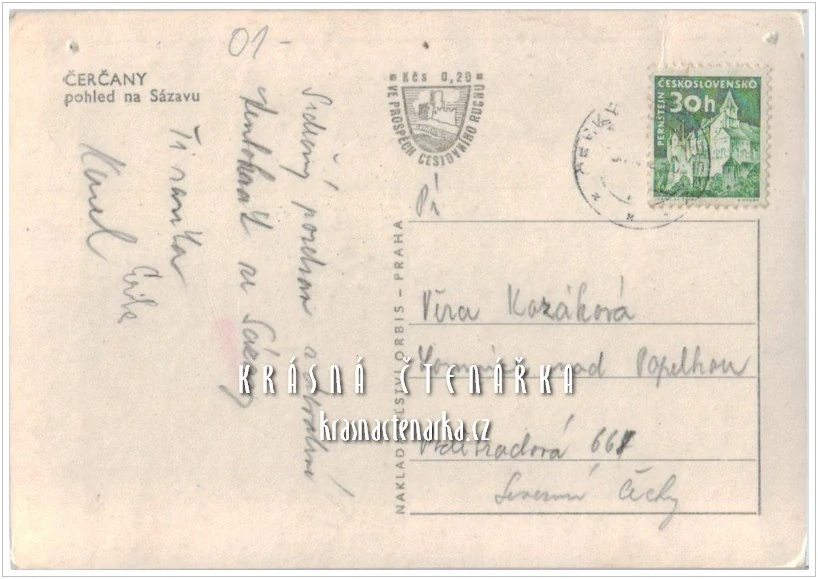 01-
ČERČANY
pohled na Sázavu
Kčs 0,20
VE PROSPĚCH CESTOVNÍHO RUCHU
ČESKOSLOVENSKO
30h
PERNŠTEJN
Srdečný pozdrav
tentokrát ze Sázavy
Karel
NAKLADATELSTVÍ ORBIS – PRAHA
Pí
Věra Kozáková
nad Popelkou
Severní Čechy
KRÁSNÁ ČTENÁŘKA
krasnactenarka.cz